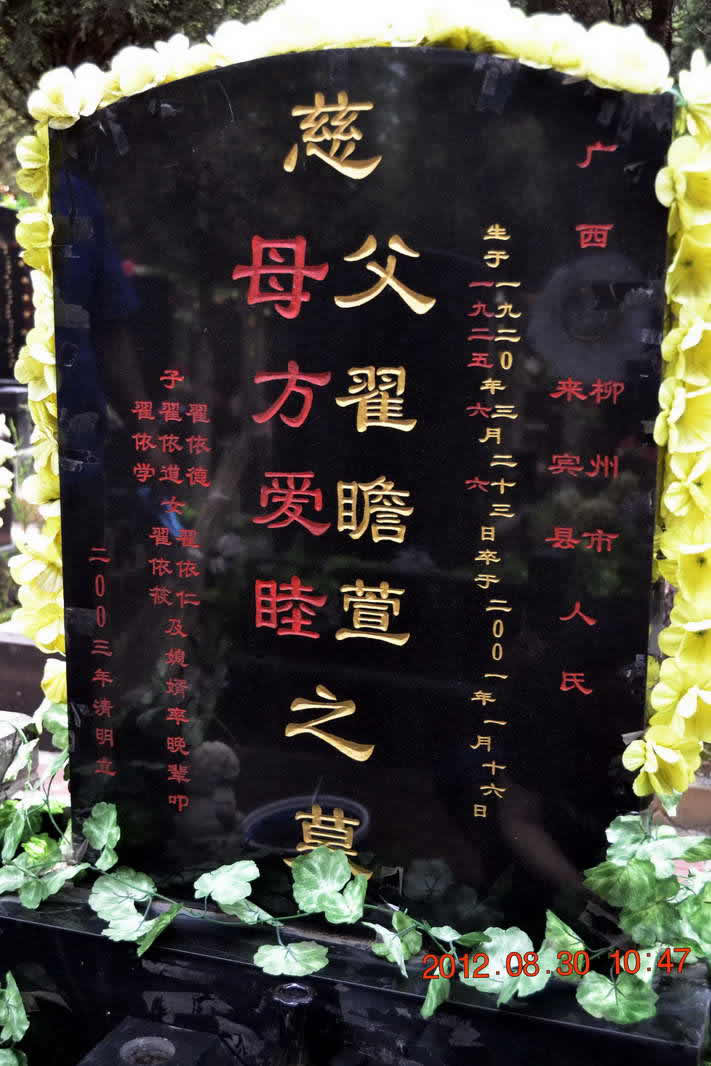 广西
柳州市
来宾县
人氏
生于一九二〇年三月二十三日卒于二〇〇一年一月十六日
一九二五 六 六
慈
父翟瞻萱
母方爱睦
之墓
翟依德
子翟依道
翟依学
女
翟依仁
翟依筱
及媳婿率晚辈叩
二〇〇三年清明立
2012.08.30 10:47